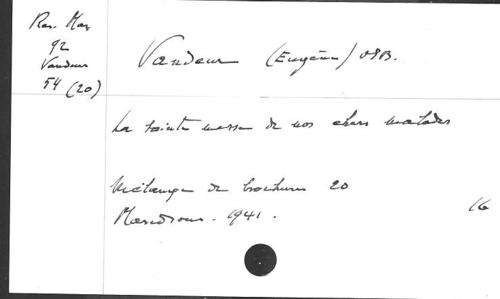 Res. Mag
92
Vandeur
54 (20)
Vandeur (Eugène) OSB.
La sainte messe de nos chers malades
Mélanges de brochures 20
Maredsous. 1941.
16